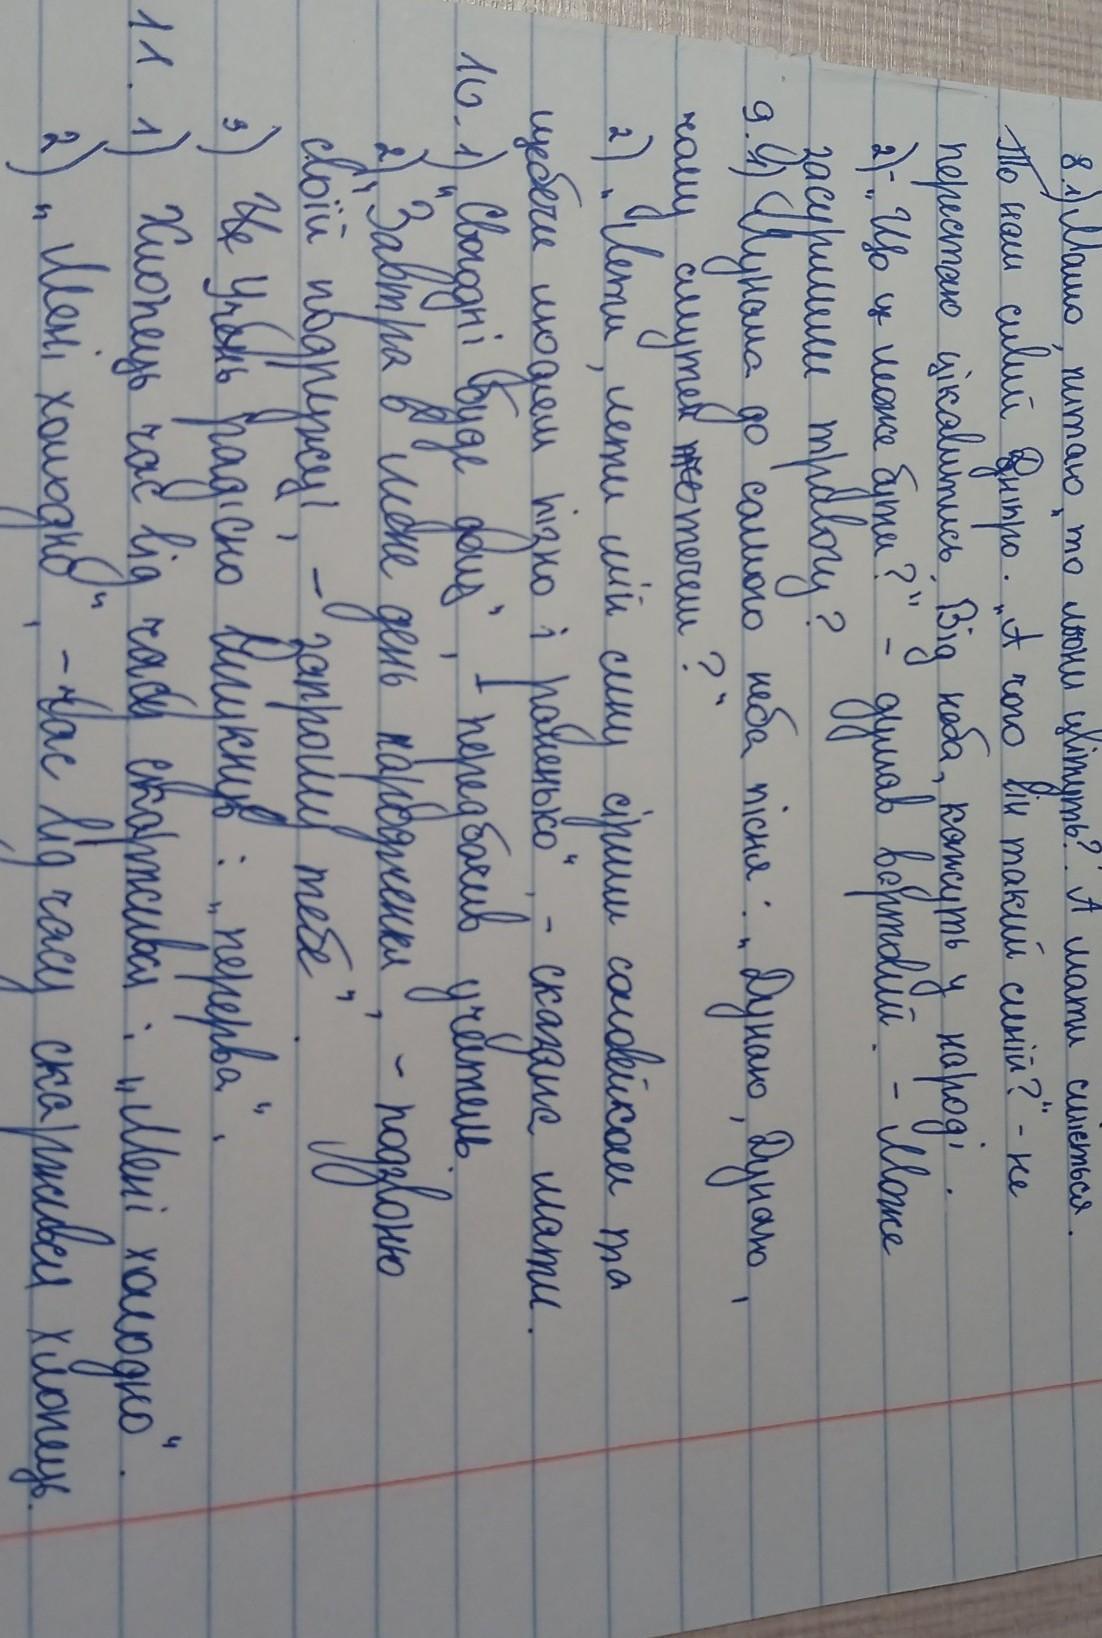 8.1) Мамо, питаю, „то льони цвітуть?" А мати сміється.
То наш сивий Дніпро. „А чого він такий синій?" - не
перестаю цікавитись. Від неба, кажуть у народі.
2) - „Що ж може бути?" - думав вартовий. - Може
засурмили тривогу?
9. 1) Лунала до самого неба пісня: „Дунаю, Дунаю,
чому смутен течеш?"
2) „Лети, лети мій сину сірим соловейком та
щебечи людям пізно і раненько", - сказала мати.
10. 1) „Сьогодні буде дощ", - передбачив учитель
2) „Завтра в мене день народження", - подзвоню
своїй подружці, - запрошу тебе".
3) Це учень радісно вигукнув: „перерва".
11. 1) Хлопець час від часу скаржився: „Мені холодно".
2) „Мені холодно", - час від часу скаржився хлопець.